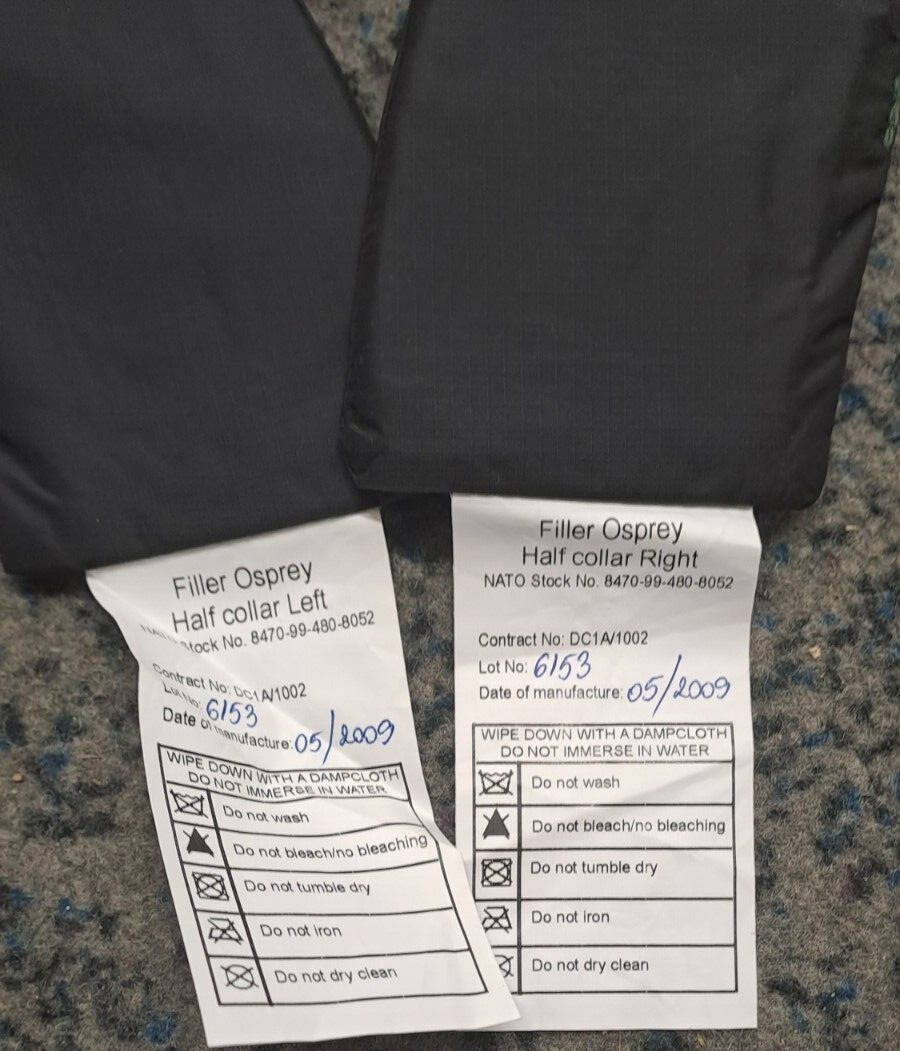 Filler Osprey
Half collar Left
Stock No. 8470-99-480-8052
Contract No: DC1A/1002
Lot No: 6153
Date of manufacture: 05/2009
WIPE DOWN WITH A DAMPCLOTH
DO NOT IMMERSE IN WATER
Do not wash
Do not bleach/no bleaching
Do not tumble dry
Do not iron
Do not dry clean
Filler Osprey
Half collar Right
NATO Stock No. 8470-99-480-8052
Contract No: DC1A/1002
Lot No: 6153
Date of manufacture: 05/2009
WIPE DOWN WITH A DAMPCLOTH
DO NOT IMMERSE IN WATER
Do not wash
Do not bleach/no bleaching
Do not tumble dry
Do not iron
Do not dry clean